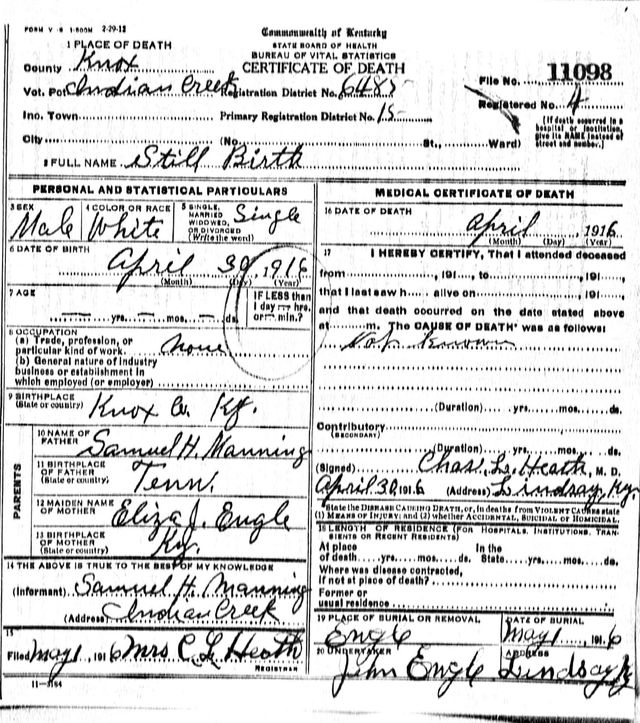 FORM V-S 1-500M 2-29-12
Commonwealth of Kentucky
STATE BOARD OF HEALTH
BUREAU OF VITAL STATISTICS
CERTIFICATE OF DEATH
1 PLACE OF DEATH
County Knox
Vot. Pct Indian Creek Registration District No. 6485
File No. 11098
Registered No. 4
Ino. Town Primary Registration District No. 15
City (No. St., Ward)
(If death occurred in a hospital or institution, give its NAME instead of street and number.)
2 FULL NAME Still Birth
PERSONAL AND STATISTICAL PARTICULARS
3 SEX Male
4 COLOR OR RACE White
5 SINGLE, MARRIED WIDOWED, OR DIVORCED (Write the word) Single
6 DATE OF BIRTH
April 30, 1916
(Month) (Day) (Year)
7 AGE
yrs. mos. ds.
IF LESS than 1 day hrs. or min.?
8 OCCUPATION
(a) Trade, profession, or particular kind of work. none
(b) General nature of industry business or establishment in which employed (or employer)
9 BIRTHPLACE
(State or country) Knox Co. Ky.
PARENTS
10 NAME OF FATHER Samuel H. Manning
11 BIRTHPLACE OF FATHER (State or country) Tenn.
12 MAIDEN NAME OF MOTHER Eliza J. Engle
13 BIRTHPLACE OF MOTHER (State or country) Ky.
14 THE ABOVE IS TRUE TO THE BEST OF MY KNOWLEDGE
(Informant) Samuel H. Manning
(Address) Indian Creek
15
Filed May 1, 1916 Mrs C L Heath
REGISTRAR
11-3184
MEDICAL CERTIFICATE OF DEATH
16 DATE OF DEATH
April 1916
(Month) (Day) (Year)
17 I HEREBY CERTIFY, That I attended deceased
from , 191 , to , 191 ,
that I last saw h alive on , 191 ,
and that death occurred on the date stated above
at m. The CAUSE OF DEATH* was as follows:
Not Known
(Duration) yrs. mos. ds.
Contributory
(SECONDARY)
(Duration) yrs. mos. ds.
(Signed) Chas. L. Heath, M. D.
April 30, 1916 (Address) Lindsay, Ky.
*State the DISEASE CAUSING DEATH, or, in deaths from VIOLENT CAUSES state (1) MEANS OF INJURY; and (2) whether ACCIDENTAL, SUICIDAL or HOMICIDAL.
18 LENGTH OF RESIDENCE (FOR HOSPITALS, INSTITUTIONS, TRANSIENTS OR RECENT RESIDENTS)
At place of death yrs. mos. ds. In the State yrs. mos. ds.
Where was disease contracted, if not at place of death?
Former or usual residence
19 PLACE OF BURIAL OR REMOVAL Engle
DATE OF BURIAL May 1 1916
20 UNDERTAKER John Engle
ADDRESS Lindsay Ky